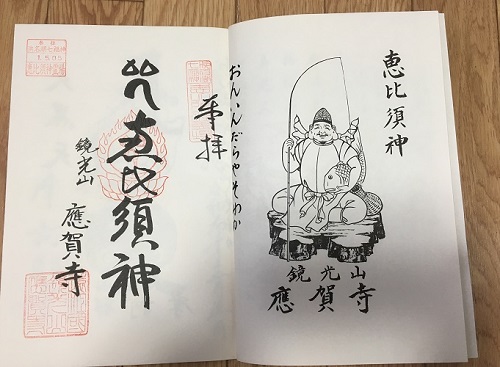 恵比須神
鏡光山
應賀寺
おんいんだらやそわか
奉拝
恵比須神
鏡光山
應賀寺